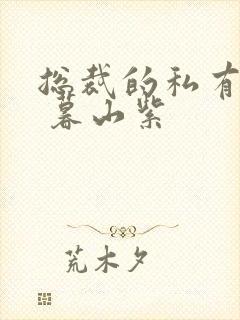 总裁的私有
暮山紫
荒木夕